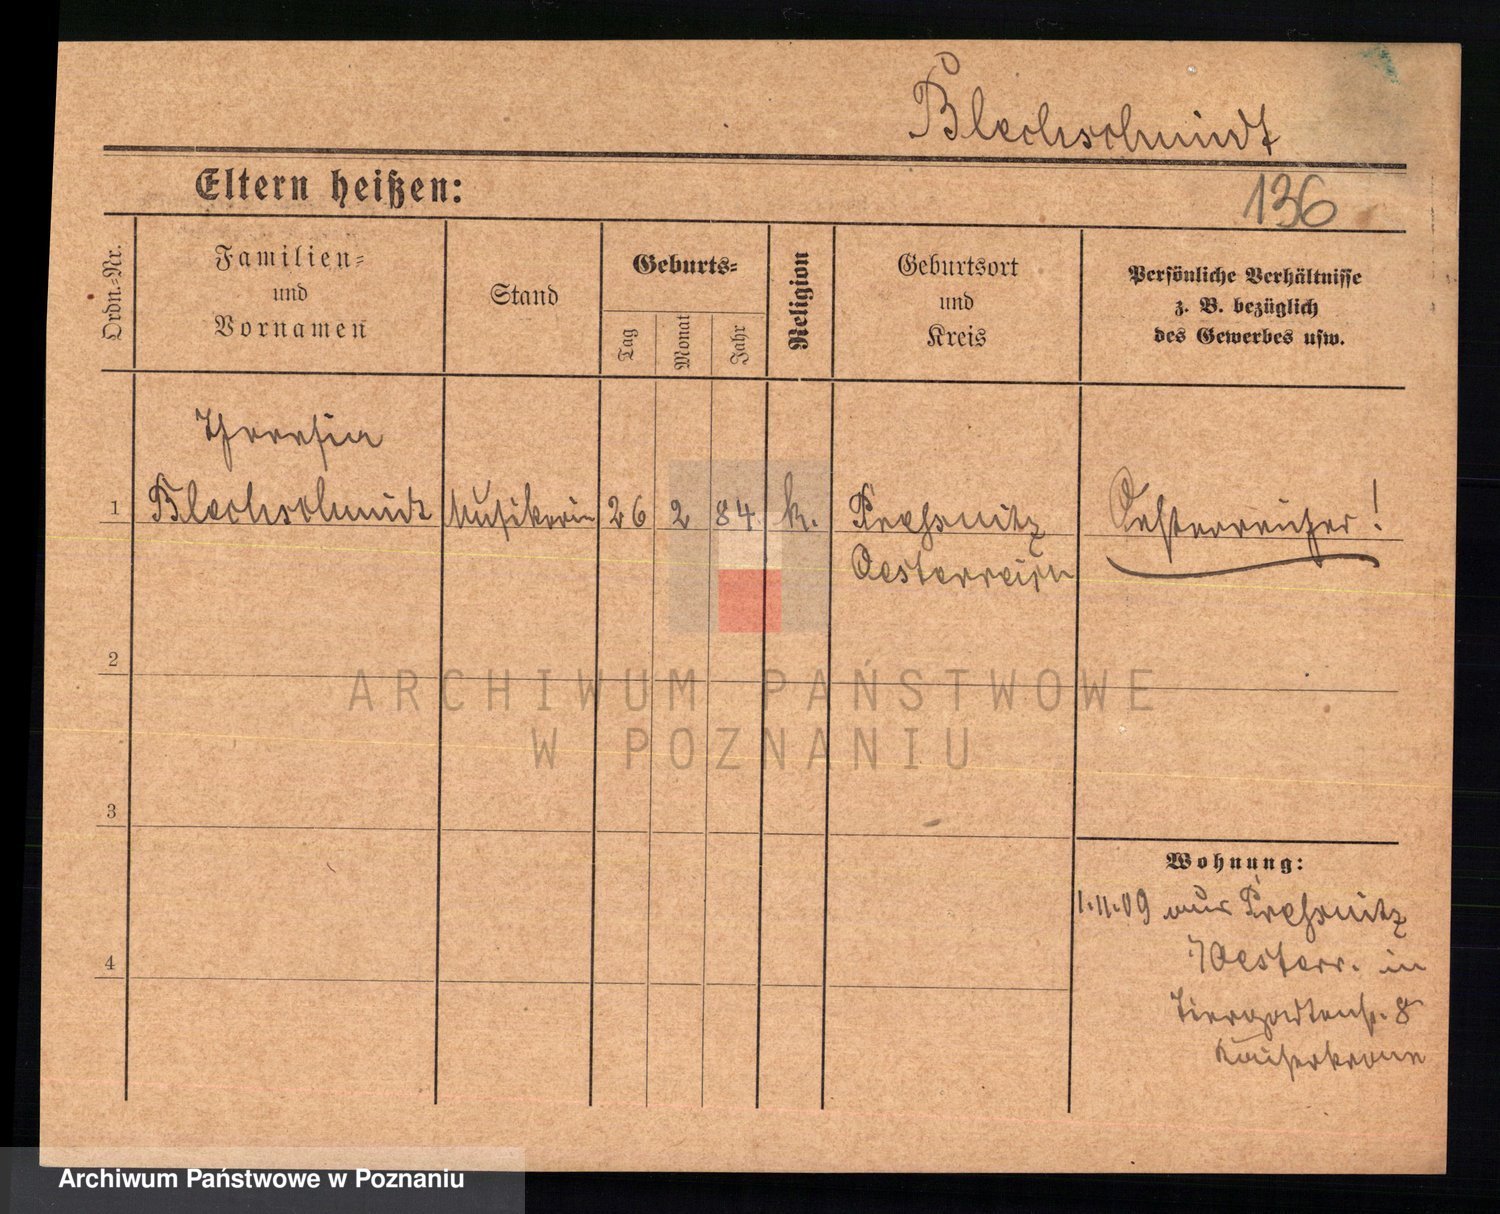 Blechschmidt
Eltern heißen:
136
Ordn.-Nr.
Familien-
und
Vornamen
Stand
Geburts-
Tag
Monat
Jahr
Religion
Geburtsort
und
Kreis
Persönliche Verhältnisse
z. B. bezüglich
des Gewerbes usw.
Theresia
1 Blechschmidt Musikerin 26 2 84. k. Pressnitz Oesterreicher!
Oesterreich
2
ARCHIWUM PAŃSTWOWE
W POZNANIU
3
Wohnung:
1.11.09 aus Pressnitz
/Oesterr. in
4
Tiergartenstr. 8
Kaiserkrone
Archiwum Państwowe w Poznaniu